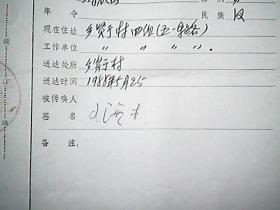 年 令
民 族 汉
现在住址 乡贤村四组
工作单位 〃 〃 〃 〃。
送达处所 乡贤村
送达时间 1988年5月25
被传唤人
签 名
备 注：